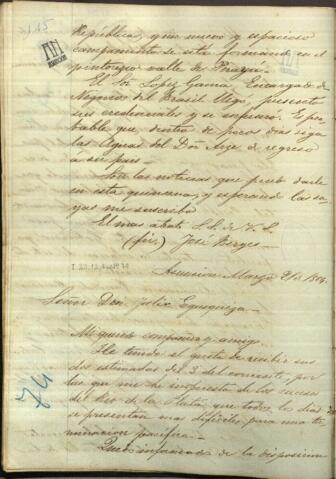 República, y un nuevo y espacioso
campamento se está formando en el
pintoresco valle de Pirayú.
El Sor Lopez Gama, Encargado de
Negocios del Brasil llegó, presentó
sus credenciales y se enfermó. Es pro-
bable que, dentro de pocos dias siga
las aguas del Don Arze de regreso
a su pais.
Son las noticias que puedo darle
en esta quincena, y esperando las su-
yas me suscribo
El mas atento S. S. de V. S.
(fir.) José Berges
Asuncion Marzo
Señor Don Felix Egusquiza.
Mi querido compañero y amigo.
He tenido el gusto de recibir sus
dos estimadas del 3 del corriente, por
las que me he impuesto de los sucesos
del Rio de la Plata, que todos los dias
se presentan mas dificiles para una ter-
minacion pacifica.
Quedo informado de la disposicion
74